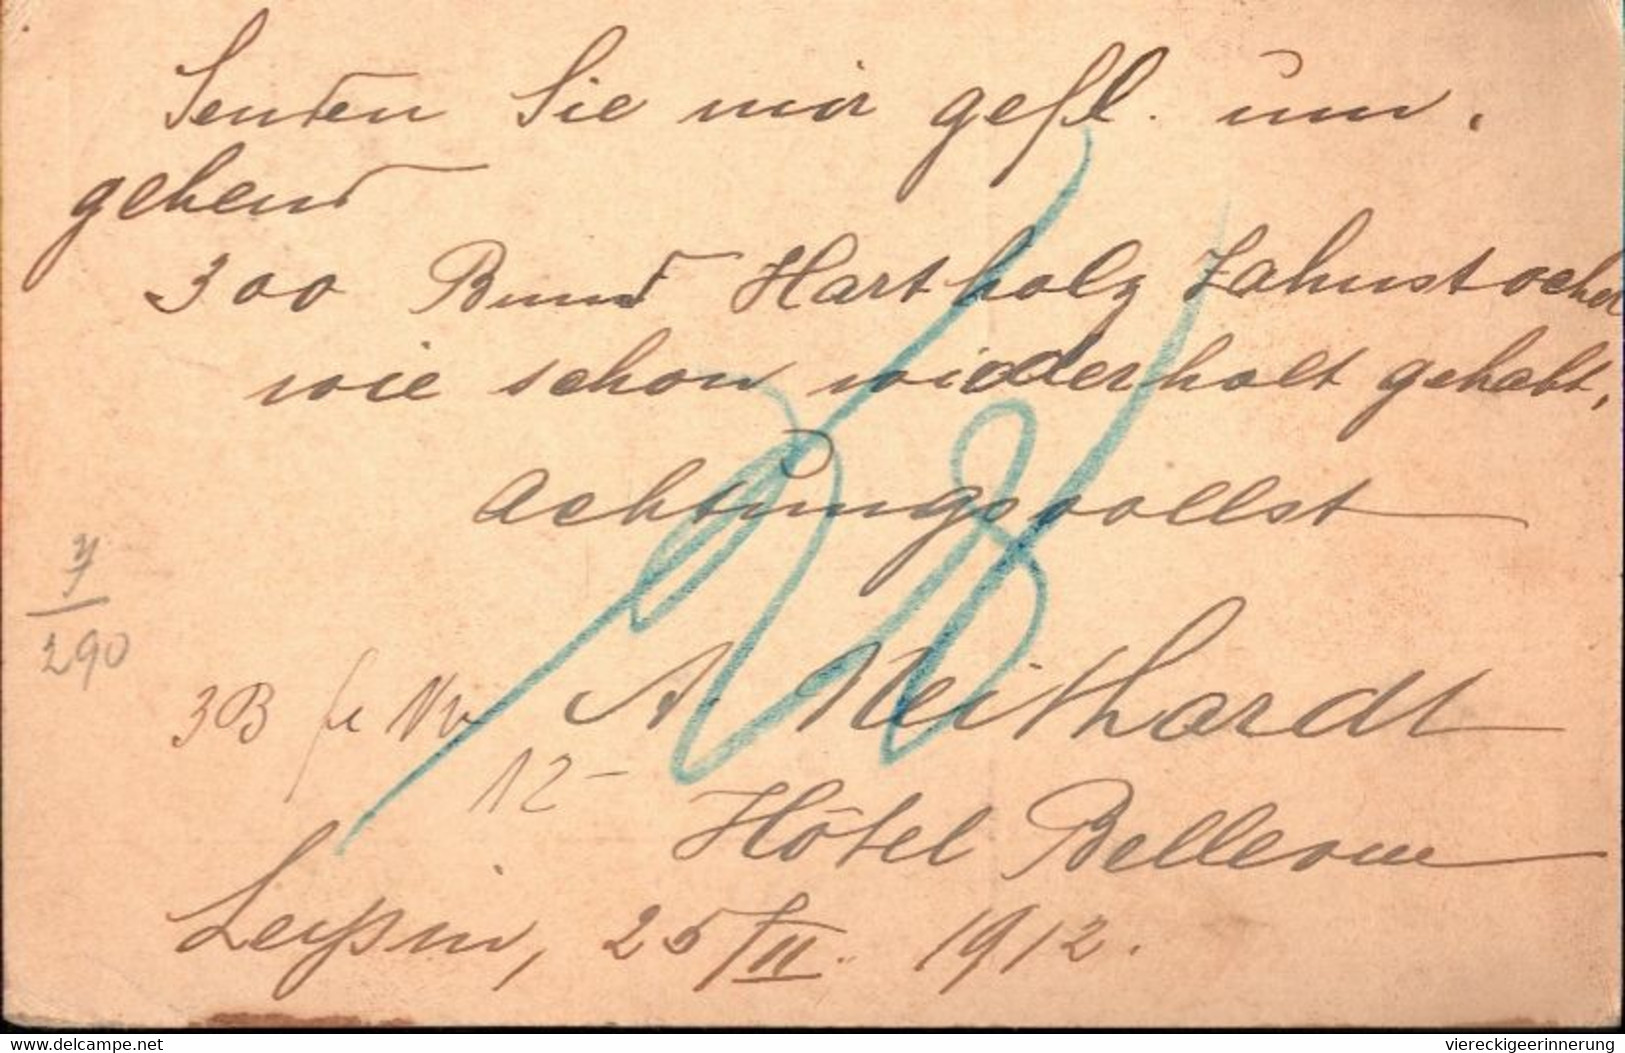 Senden Sie mir gefl. um-
gehend
300 Bund Hartholz Zahnstocher
wie schon wiederholt gehabt,
Achtungsvollst
7
290
3B
A. Neithardt
12-
Hôtel Bellevue
25/II. 1912.
www.delcampe.net
viereckigeerinnerung